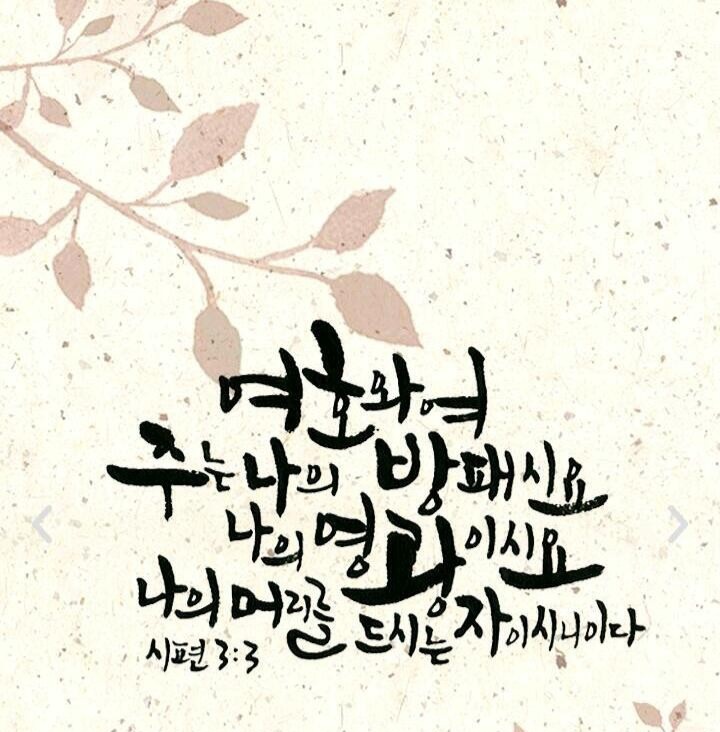 여호와여
주는 나의 방패시요
나의 영광이시요
나의 머리를 드시는 자이시니이다
시편 3:3